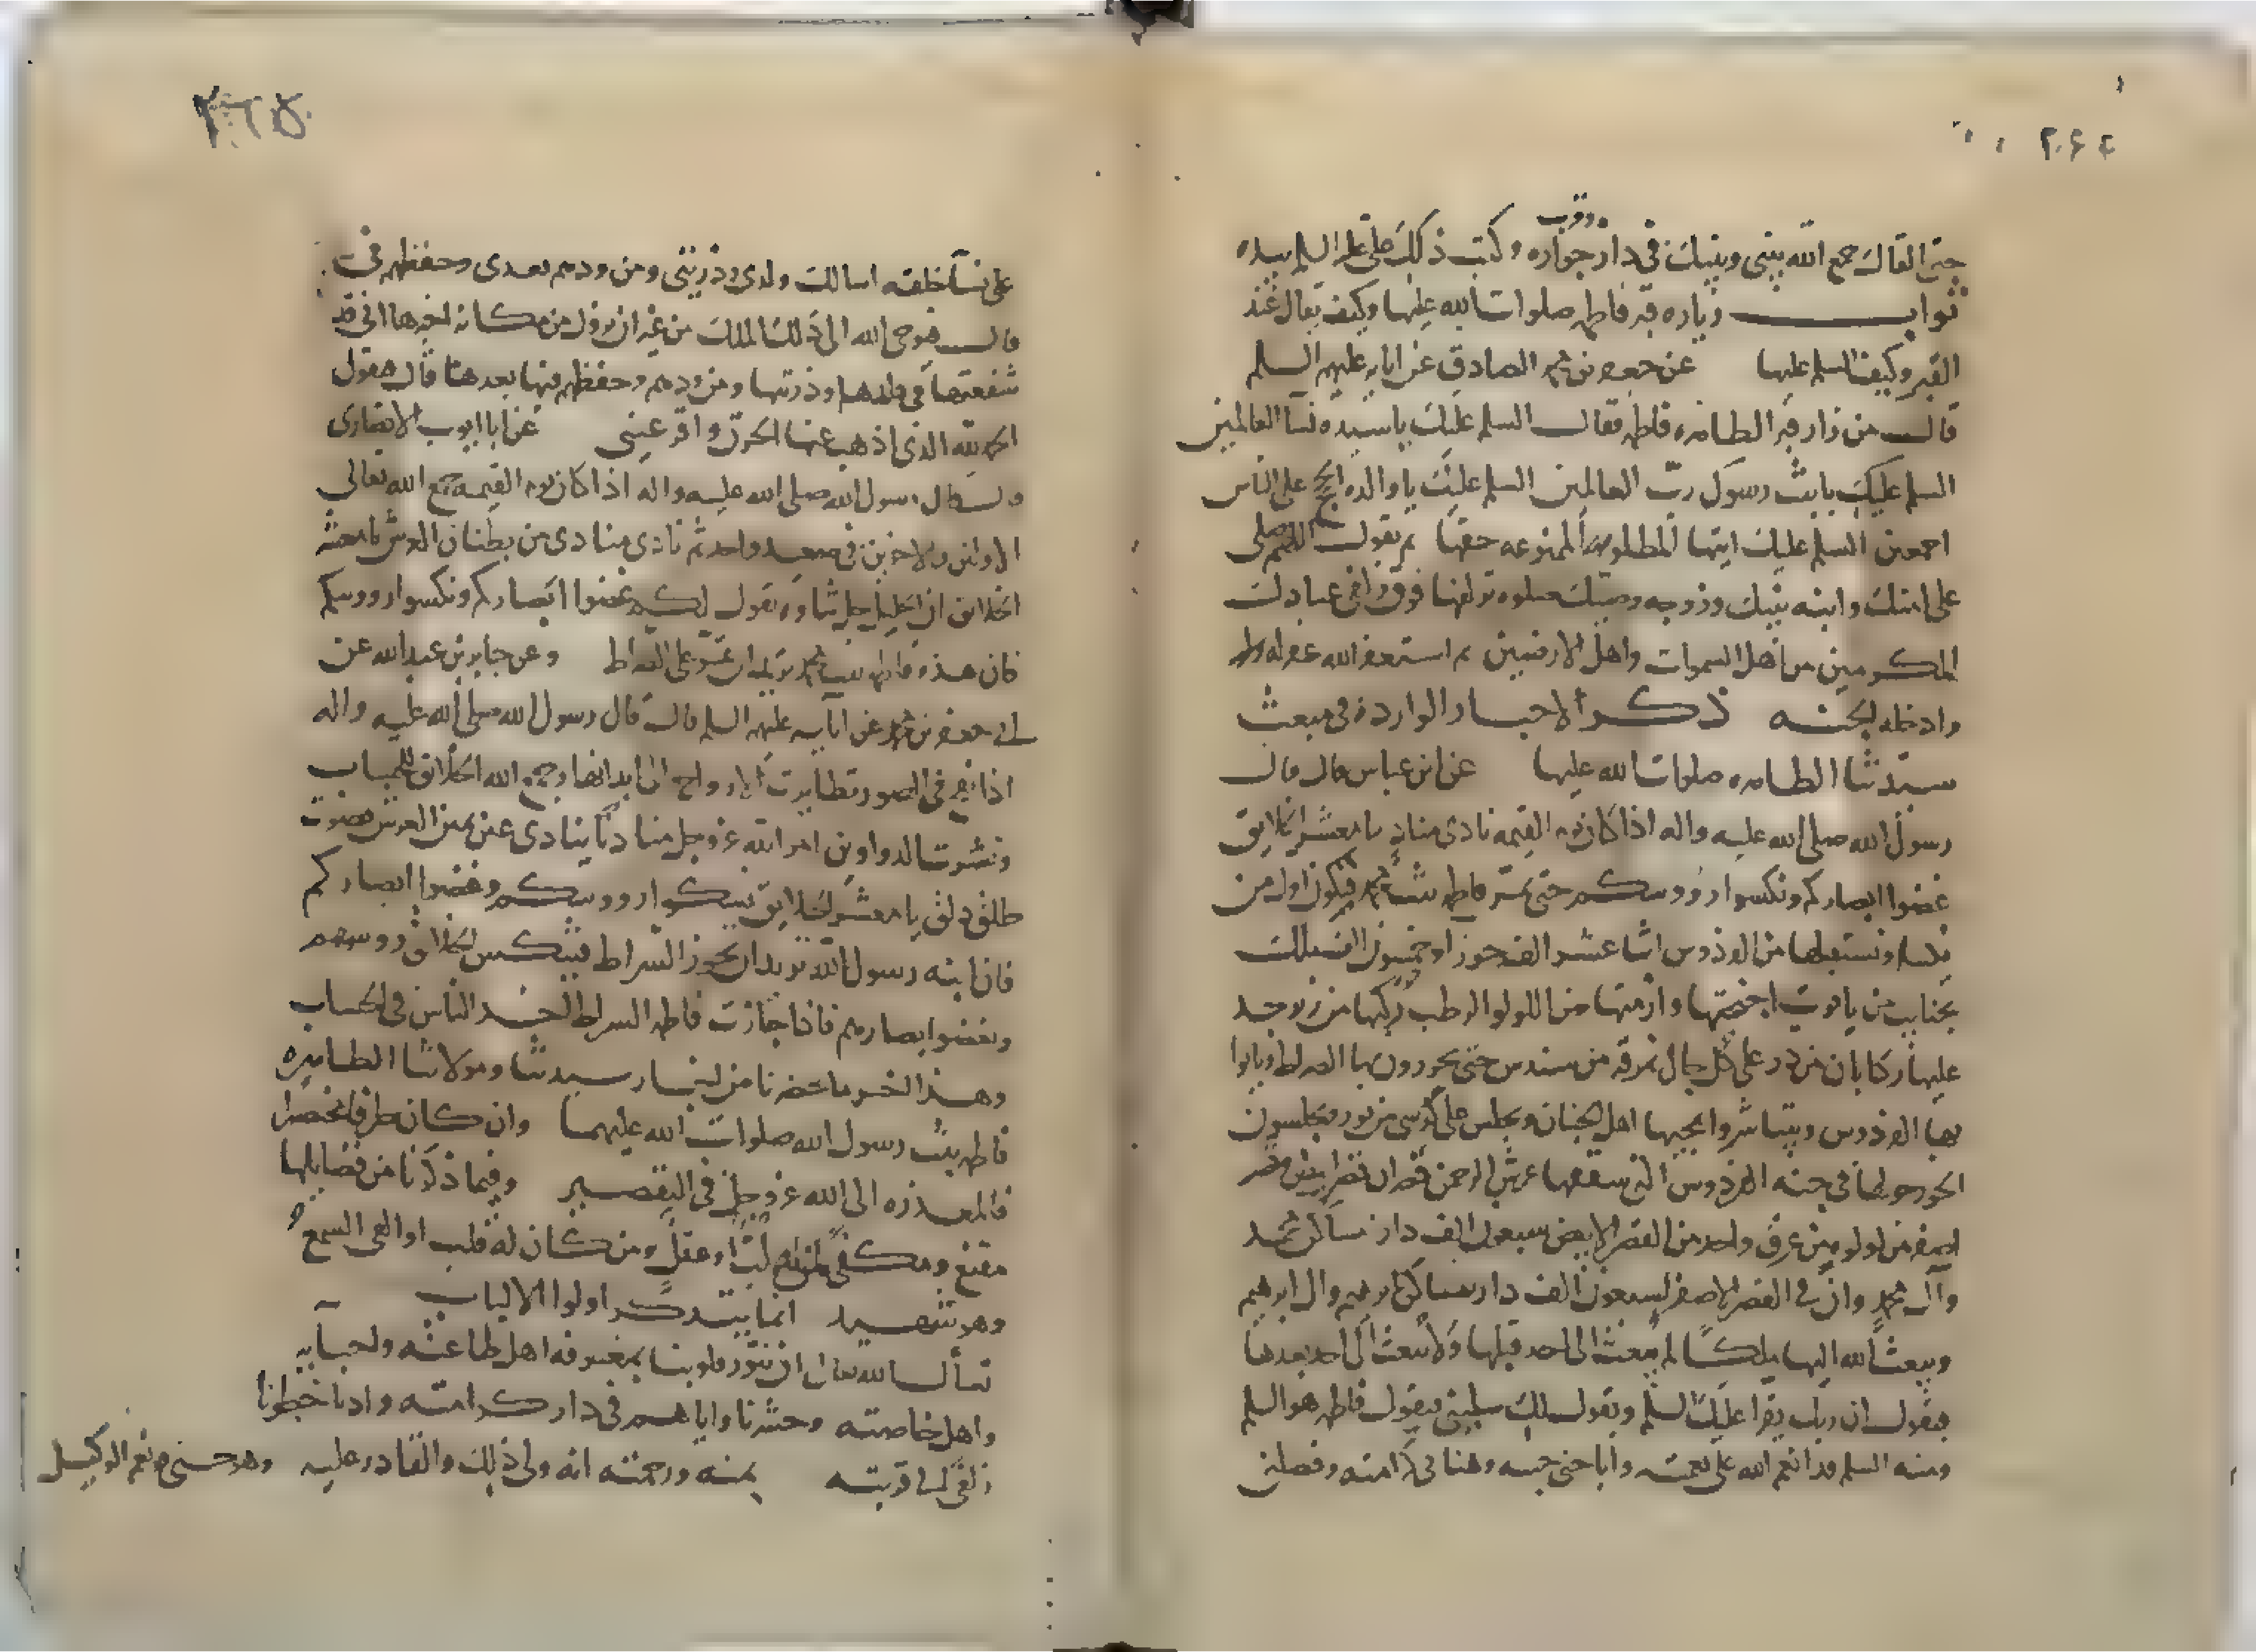 ٢٤٤
وقرب
حتى القاك جمع الله بيني وبينك في دار جواره وكتب ذلك علي عليه السلم بيده
ثواب زياره قبر فاطمه صلوات الله عليها وكيف يقال عند
القبر وكيف السلم عليها عن جعفر بن محمد الصادق عن ابايه عليهم السلم
قال من زار قبر الطاهره فاطمه فقال السلم عليك يا سيده نسآ العالمين
السلم عليك يا بنت رسول رب العالمين السلم عليك يا والده الحجج على الناس
اجمعين السلم عليك ايتها المظلومه الممنوعه حقها ثم يقول اللهم صلى
على امتك وابنه نبيك وزوجه وصيك صلوه تزلفها فوق زلفى عبادك
المكرمين من اهل السموات واهل الارضين ثم استغفر الله غفر له
وادخله الجنه ذكر الاخبار الوارده في مبعث
سيدتنا الطاهره صلوات الله عليها عن ابن عباس قال قال
رسول الله صلى الله عليه واله اذا كان يوم القيمه نادى مناد يا معشر الخلايق
غضوا ابصاركم ونكسوا رووسكم حتى تمر فاطمه بنت محمد فيكون اول من
يكسا وتستقبلها من الفردوس اثنا عشر الف حورا وخمسون الف ملك
بجنايب من ياقوت اجنحتها وازمتها من اللولو الرطب ركبها من زبرجد
عليها ركابان من در على كل نمرقه من سندس حتى يجوزون بها الصراط وياتوا
بها الفردوس ويتباشروا بمجيها اهل الجنان وتجلس على كرسى من نور ويجلسون
الحور حولها في جنه الفردوس التي سقفها عرش الرحمن قصران قصر ابيض وقصر
اصفر من لولو من عرق واحد من القصر الابيض سبعون الف دار مساكن محمد
وآل محمد وان في القصر الاصفر لسبعون الف دار مساكن ابرهيم وال ابرهيم
ويبعث الله اليها ملكا لم يبعث الى احد قبلها ولا يبعث الى احد بعدها
فيقول ان ربك يقرا عليك السلم ويقول لك سليني فيقول فاطمه هو السلم
ومنه السلم قد اتم الله على نعمته واباحني جنته وهنا في كرامته وفضلني
على نسآ خلقه اسالك ولدي وذريتي ومن ودهم بعدى وحفظهم في
قال فيوحى الله الى ذلك الملك من غير ان يزول من مكانه اخبرها انى قد
شفعتها في ولدها وذريتها ومن ودهم وحفظهم فيها بعدها قال فيقول
الحمد لله الذى اذهب عنا الحزن واقر عينى عن ابا ايوب الانصارى
قال قال رسول الله صلى الله عليه واله اذا كان يوم القيمه جمع الله تعالى
الاولين والاخرين في صعيد واحد ثم نادى منادى من بطنان العرش يا معشر
الخلايق ان الجليل جل ثناوه يقول لكم غضوا ابصاركم ونكسوا رووسكم
فان هذه فاطمه بنت محمد تريد ان تمر على الصراط وعن جابر بن عبد الله عن
جعفر بن محمد عن آبايه عليهم السلم قال قال رسول الله صلى الله عليه واله
اذا نفخ في الصور تطايرت الارواح الى ابدانها وجمع الله الخلايق للحساب
ونشرت الدواوين امر الله عز وجل مناديا ينادى عن يمين العرش بصوت
طلق ذلق يا معشر الخلايق نكسوا رووسكم وغضوا ابصاركم
فان ابنه رسول الله تريد ان تجوز السراط فينكس الخلايق روسهم
ويغضوا ابصارهم فاذا جازت فاطمه السراط اخذ الناس في الحساب
وهذا اخر ما حضرنا من اخبار سيدتنا ومولاتنا الطاهره
فاطمه بنت رسول الله صلوات الله عليهما وان كان طرفا مختصرا
فالمعذره الى الله عز وجل في التقصير وفيما ذكرنا من فضايلها
مقنع ومكفى لمن له لب وعقل ومن كان له قلب او القى السمع
وهو شهيد انما يتذكر اولوا الالباب
نسأل الله تعالى ان ينور قلوبنا بمعرفه اهل طاعته واحبايه
واهل خاصته وحشرنا واياهم في دار كرامته وادنا خطونا
زلفى الى قربته بمنه ورحمته انه ولى ذلك والقادر عليه وهو حسبي ونعم الوكيل